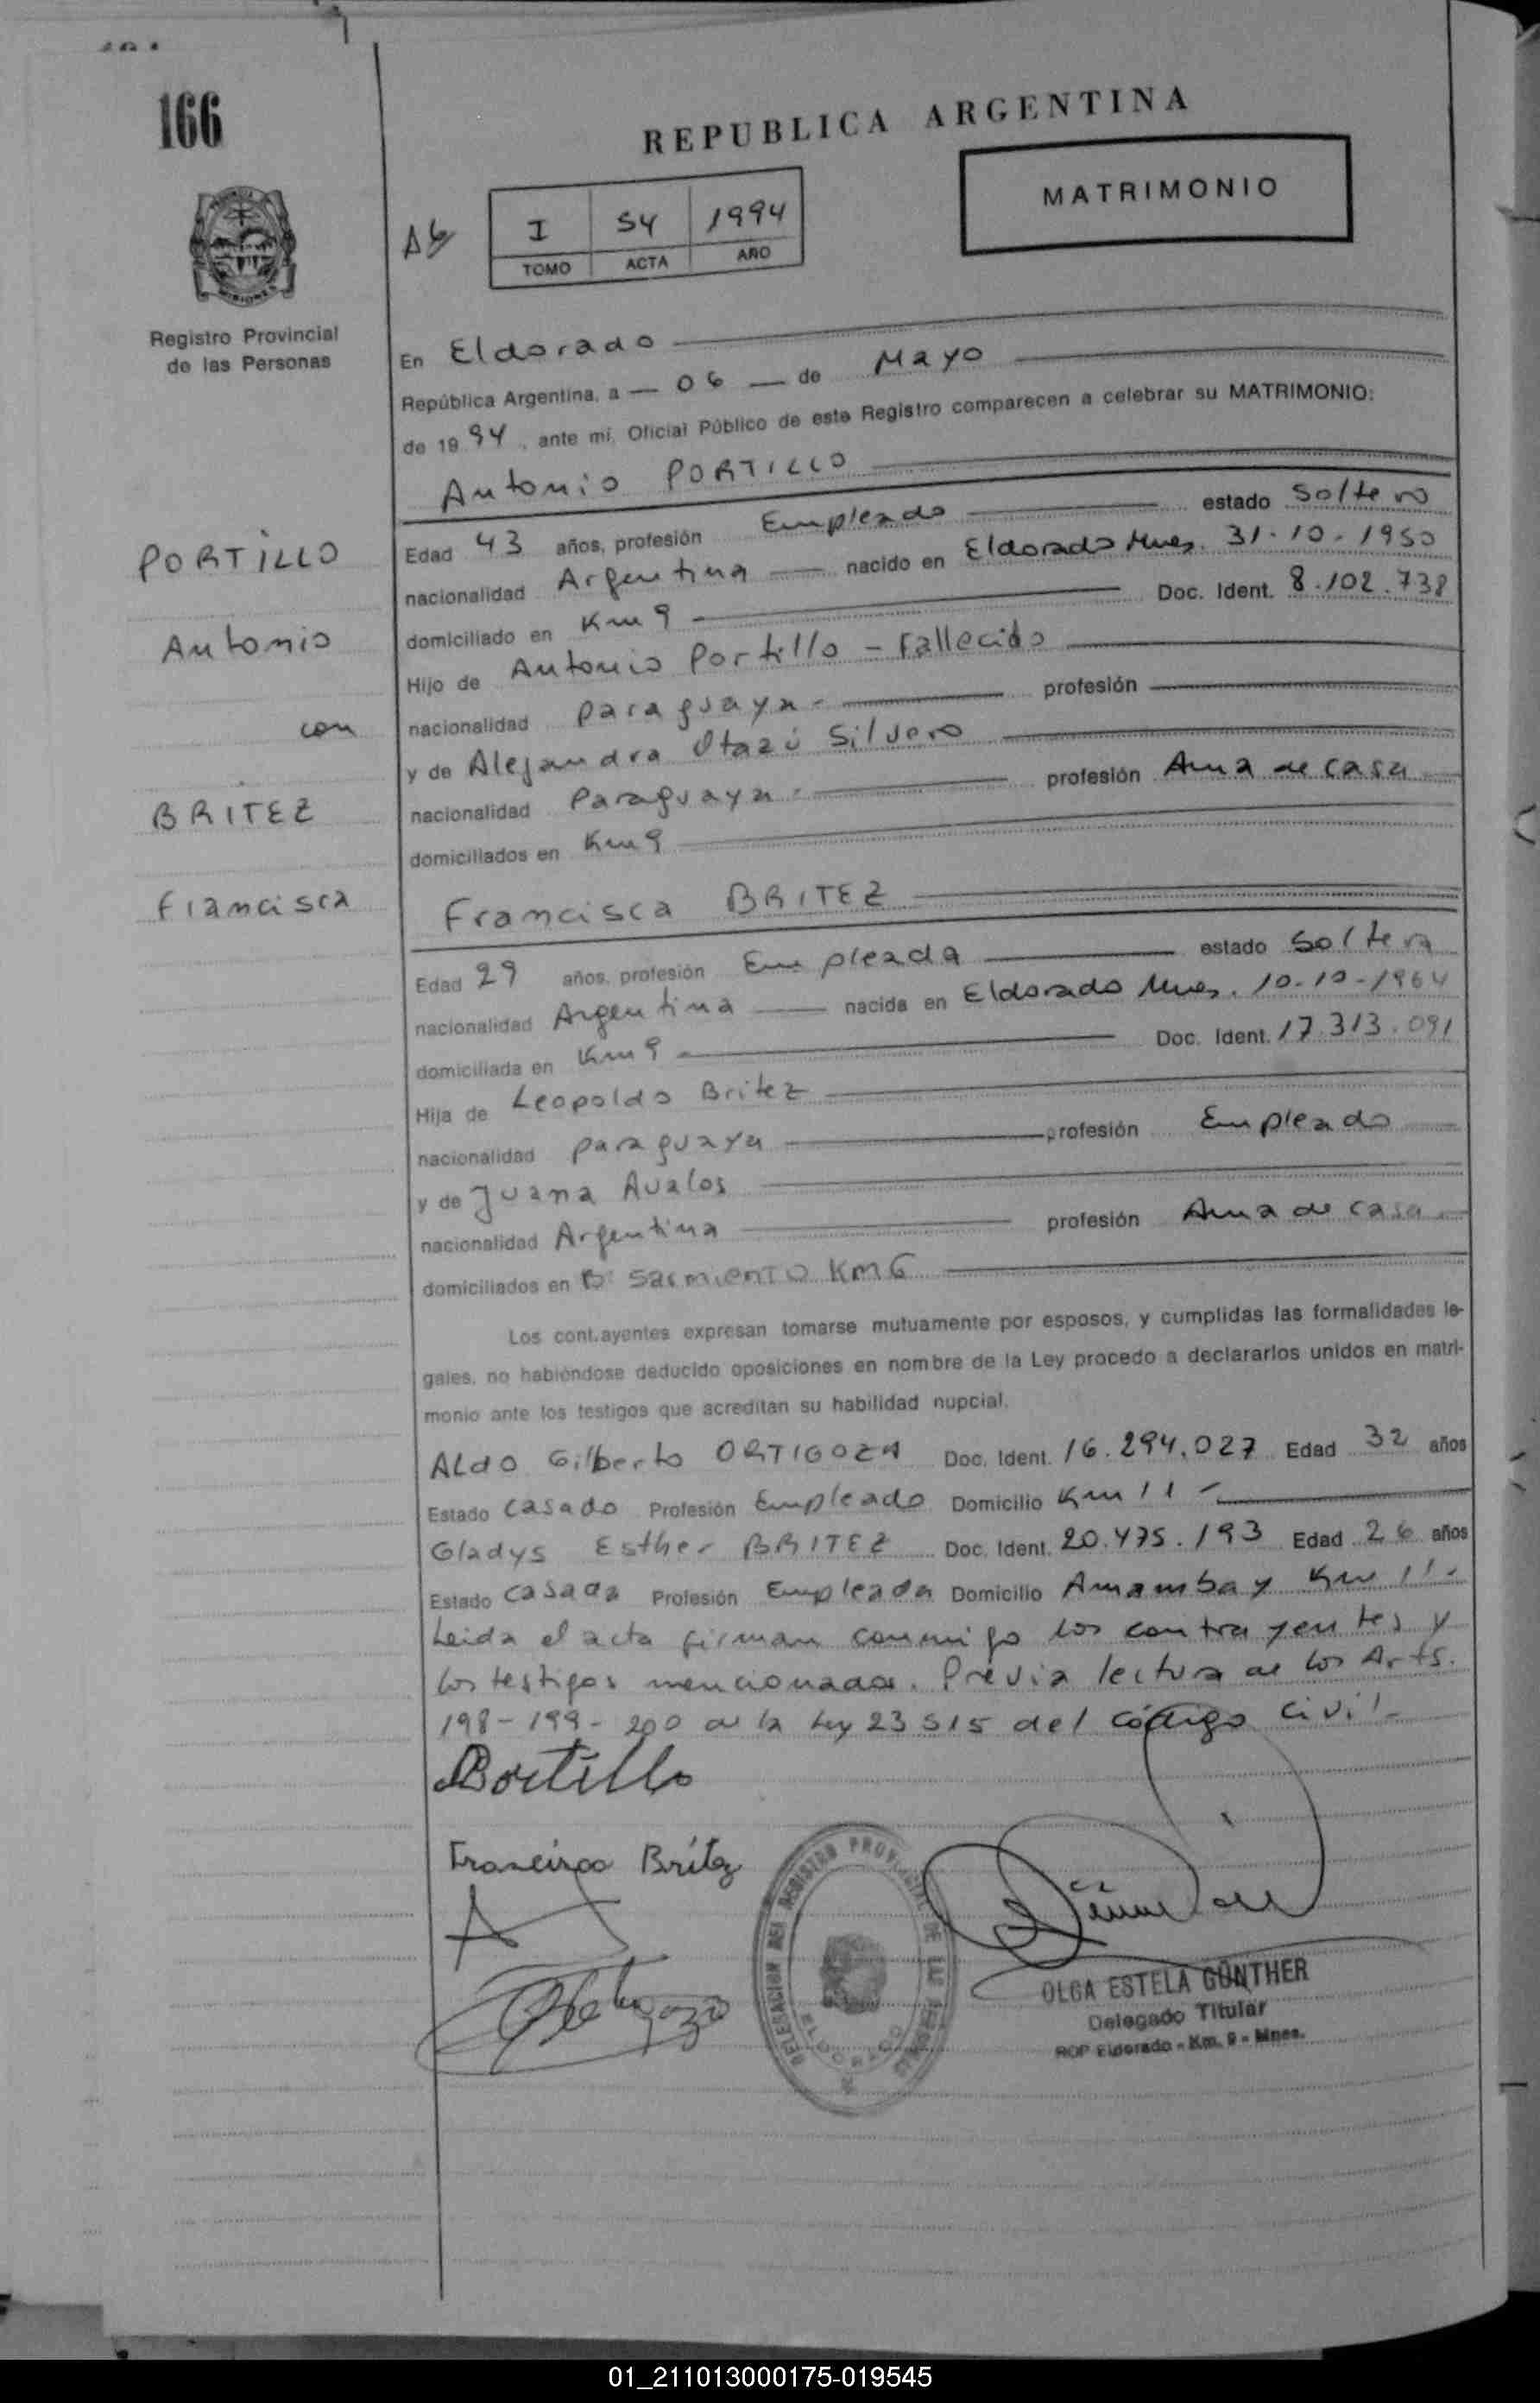 166
REPUBLICA ARGENTINA
MATRIMONIO
I 54 1994
TOMO ACTA AÑO
MISIONES
Registro Provincial
de las Personas
En Eldorado
República Argentina, a 06 de Mayo
de 1994, ante mí, Oficial Público de este Registro comparecen a celebrar su MATRIMONIO:
Antonio PORTILLO
Edad 43 años, profesión Empleado estado Soltero
nacionalidad Argentina nacido en Eldorado Mnes. 31-10-1950
domiciliado en Km 9 Doc. Ident. 8.102.738
Hijo de Antonio Portillo - Fallecido
nacionalidad paraguaya - profesión
y de Alejandra Otazú Silvero
nacionalidad Paraguaya - profesión Ama de casa
domiciliados en Km 9
PORTILLO
Antonio
con
BRITEZ
Francisca
Francisca BRITEZ
Edad 29 años, profesión Empleada estado Soltera
nacionalidad Argentina nacida en Eldorado Mnes. 10-10-1964
domiciliada en Km 9 Doc. Ident. 17.313.091
Hija de Leopoldo Britez
nacionalidad paraguaya profesión Empleado
y de Juana Avalos
nacionalidad Argentina profesión Ama de casa
domiciliados en B° Sarmiento KM 6
Los cont.ayentes expresan tomarse mutuamente por esposos, y cumplidas las formalidades le-
gales, no habiéndose deducido oposiciones en nombre de la Ley procedo a declararlos unidos en matri-
monio ante los testigos que acreditan su habilidad nupcial.
ALdo Gilberto ORTIGOZA Doc. Ident. 16.294.027 Edad 32 años
Estado Casado Profesión Empleado Domicilio Km 11 -
Gladys Esther BRITEZ Doc. Ident. 20.475.193 Edad 26 años
Estado Casada Profesión Empleada Domicilio Amambay Km 11-
Leida el acta firman conmigo los contrayentes y
los testigos mencionados. Previa lectura de los Arts.
198-199-200 de la Ley 23515 del código civil-
Portillo
Francisca Britez
DELEGACION DEL REGISTRO PROVINCIAL DE LAS PERSONAS
ELDORADO
OLGA ESTELA GÜNTHER
Delegado Titular
RDP Eldorado - Km. 9 - Mnes.
01_211013000175-019545